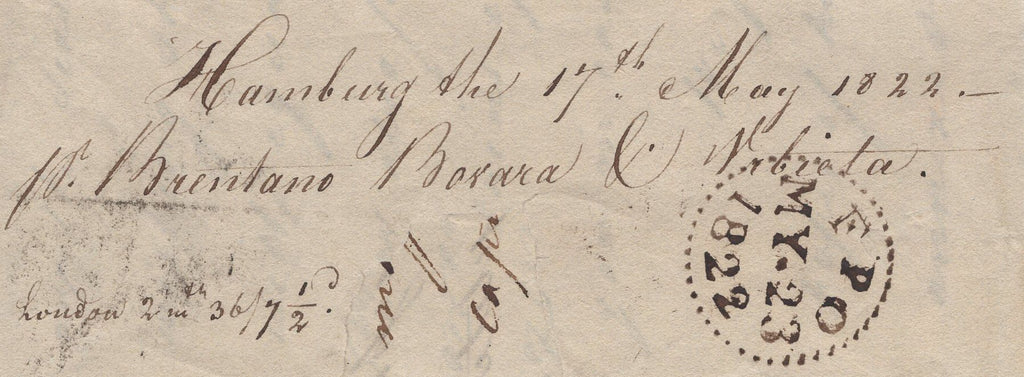 Hamburg the 17th. May 1822.—
pr. Brentano Bovara & Urbieta.
London 2 mth 36/7 1/2d.
cap
F P O
MY·23
1822